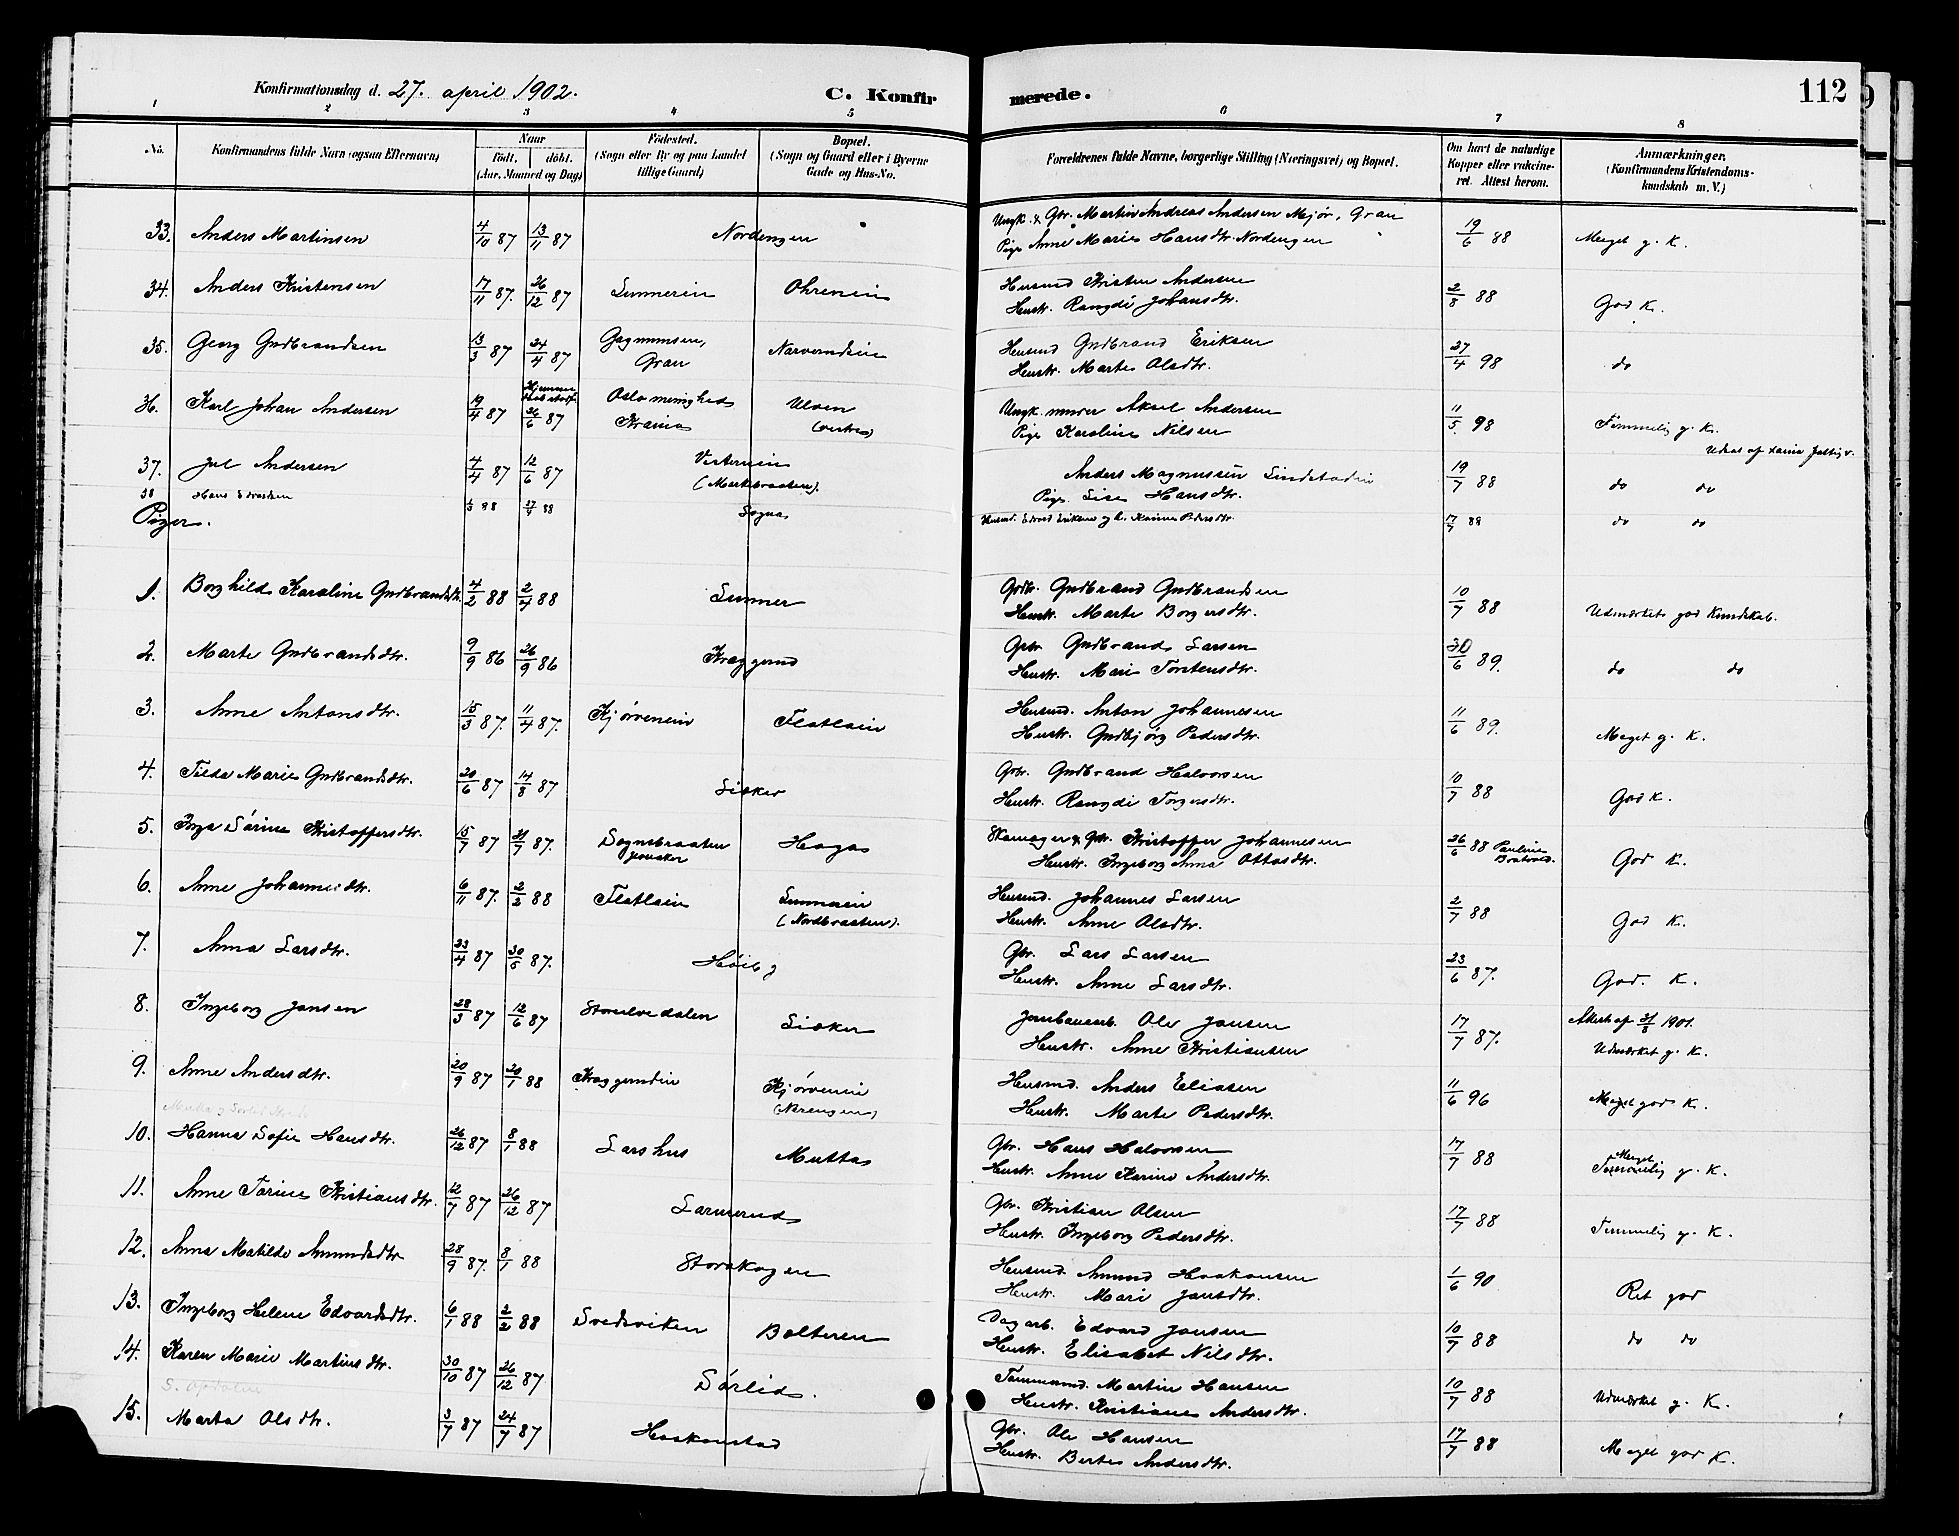 Konfirmationsdag d. 27. april 1902.
C. Konfirmerede.
112
1 2 3 4 5 6 7 8
No. Konfirmandens fulde Navn (ogsaa Efternavn) Naar født, døbt. (Aar, Maaned og Dag) Fødested. (Sogn eller By og paa Landet tillige Gaard) Bopæl. (Sogn og Gaard eller i Byerne Gade og Hus-No. Forældrenes fulde Navne, borgerlige Stilling (Næringsvei) og Bopæl. Om havt de naturlige Kopper eller vaccineret. Attest herom. Anmærkninger. (Konfirmandens Kristendomskundskab m. V.)
33. Anders Martinsen 4/10 87 13/11 87 Nordengen Ungk. & Gbr. Martin Andreas Andersen Mejør, Gran
Pige Anne Marie Hansdtr. Nordengen 19/6 88 Meget g. K.
34. Anders Kristensen 17/11 87. 26/12 87 Sumerein Ohrenein Husmd Kristen Andersen
Hustr. Rangdi Johansdtr. 2/8 88 God K.
35. Georg Gudbrandsen 13/3 87 24/4 87 Gagnumsen, Gran Narverudein Husmd Gudbrand Eriksen
Hustr. Marte Olsdtr. 27/4 98 do
36. Karl Johan Andersen 19/4 87 26/6 87 Oslo menighed Krania Ulven (vestre) Ungk. murer Aksel Andersen
Pige Karoline Nilsen 11/5 98 Temmelig g. K.
37. Jul Andersen 4/4 87 12/6 87 Vesternein (Markebraaten). Anders Magnussen Lindstadein
Pige Lise Hansdtr. 19/7 88 do do
38 Hans Edvardsen 88 88 Sogna Husmd. Edvard Eriksen og h. Karine Pedersdtr. 17/7 88 do do
Piger.
1. Borghild Karoline Gudbrandsdtr. 4/2 88 2/4 88 Sumer Grdbr. Gudbrand Gudbrandsen
Hustr. Marte Borgersdtr. 10/7 88 Udmærket god Kundskab.
2. Marte Gudbrandsdtr. 9/9 86 26/9 86 Kraggerud Gbr Gudbrand Larsen
Hustr. Mari Torstensdtr. 30/6 89. do do
3. Anne Antonsdtr. 15/3 87. 11/4 87. Kjørvenein Flatlain Husmd. Anton Johannesen
Hustr. Gudbjørg Pedersdtr. 11/6 89. Meget g. K.
4. Tilda Marie Gudbrandsdtr. 20/6 87 14/8 87 Lisker Gbr. Gudbrand Halvorsen
Hustr. Rangdi Torgersdtr. 10/7 88 God K.
5. Inga Sørine Kristoffersdtr. 15/7 87 31/7 87. Sognsbraaten Haga Skomager & Gbr. Kristoffer Johannesen
Hustr. Ingeborg Anna Ottosdtr. 26/6 88 Pauline Bratvold. God K.
6. Anne Johannesdtr. 6/11 87. 2/2 88 Flatlain Sumerein (Nordbraaten). Husmd. Johannes Larsen
Hustr. Anne Olsdtr. 2/7 88 God K.
7. Anna Larsdtr. 23/4 87 30/5 87. Høiby Gbr. Lars Larsen
Hustr. Anne Larsdtr. 23/6 87. God. K.
8. Ingeborg Jansen 28/3 87 12/6 87 Storelvedalen Lisker Jernbanearb. Ole Jansen
Hustr. Anne Kristiansen 17/7 87. Attest af 31/8 1901.
Udmærket g. K.
9. Anne Andersdtr. 20/9 87 20/1 88 Kraggerudein Kjørvenein Husmd. Anders Eliasen
Hustr. Marte Pedersdtr. 11/6 96 Meget god K.
10. Hanna Sofie Hansdtr. 26/12 87 8/1 88 Larshus Mutta Gbr. Hans Halvorsen
Hustr. Anne Karine Andersdtr. 17/7 88 Meget
Temmelig g. K.
11. Anne Torine Kristiansdtr. 12/7 87 26/12 87 Larmerud Gbr. Kristian Olsen
Hustr. Ingeborg Pedersdtr. 17/7 88 Temmelig g. K.
12. Anna Matilde Amundsdtr 28/9 87. 8/1 88 Storskogen Husmd. Amund Haakonsen
Hustr. Mari Jansdtr. 1/6 90 Ret god
13. Ingeborg Helene Edvardsdtr. 6/1 88 2/2 88 Svedsviken Bolteren Dagarb. Edvard Jansen
Hustr. Elisabet Nilsdtr. 10/7 88 do do
14. Karen Marie Martinsdtr. 30/10 87 26/12 87 Sørlid. Tømmermd. Martin Hansen
Hustr. Kristiane Andersdtr. 10/7 88 Udmærket g. K.
15. Marta Olsdtr. 3/7 87 24/7 87 Haakenstad Gbr. Ole Hansen
Hustr. Berte Andersdtr. 17/7 88 Meget god K.